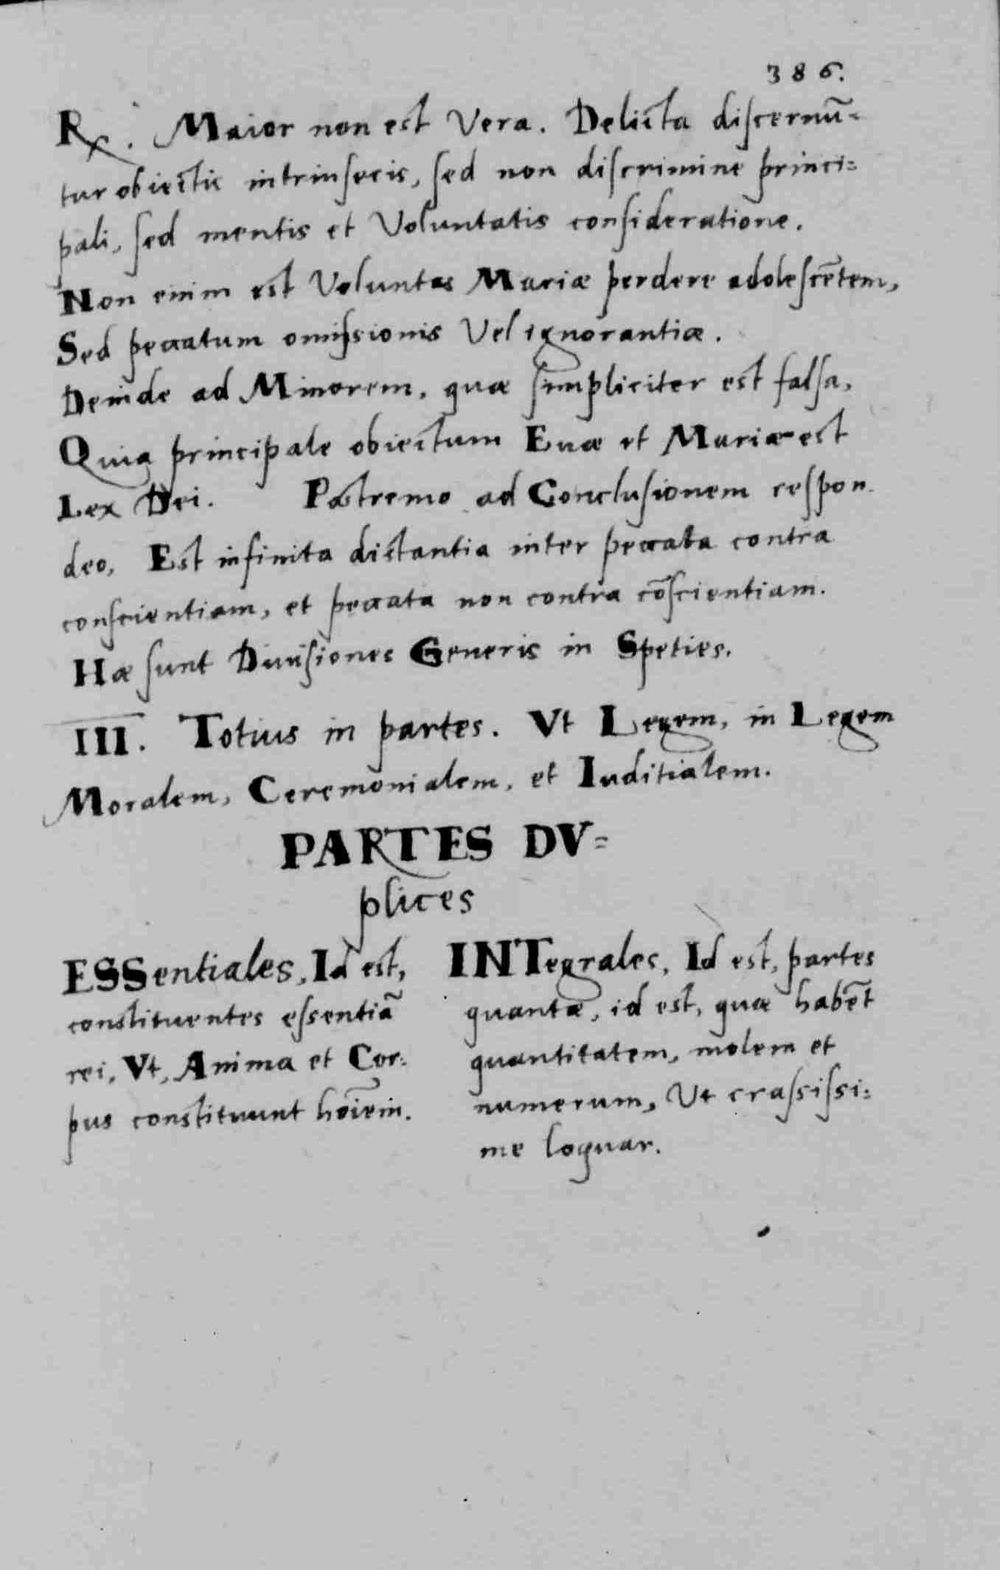 386.
R. Maior non est Vera. Delicta discernū-
tur obiectis intrinsecis, sed non discrimine princi=
pali, sed mentis et Voluntatis consideratione.
Non enim est Voluntas Mariæ perdere adolescētem,
Sed peccatum omissionis Vel ignorantiæ.
Deinde ad Minorem, quæ simpliciter est falsa,
Quia principale obiectum Euæ et Mariæ est
Lex Dei. Postremo ad Conclusionem respon
deo, Est infinita distantia inter peccata contra
conscientiam, et peccata non contra cōscientiam.
Hæ sunt Diuisiones Generis in Speties.
III. Totius in partes. Vt Legem, in Legem
Moralem, Ceremonialem, et Iuditialem.
PARTES DV=
plices
ESSentiales, Id est,
constituentes essentiā
rei, Vt, Anima et Cor=
pus constituunt hōiem.
INTegrales, Id est, partes
quantæ, id est, quæ habēt
quantitatem, molem et
numerum, Vt crassissi=
me loquar.